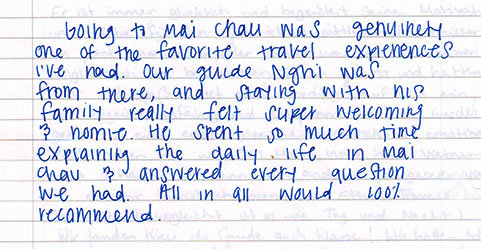 Going to Mai Chau was genuinely
one of the favorite travel experiences
I've had. Our guide Nghi was
from there, and staying with his
family really felt super welcoming
& homie. He spent so much time
explaining the daily life in Mai
Chau & answered every question
we had. All in all would 100%
recommend.